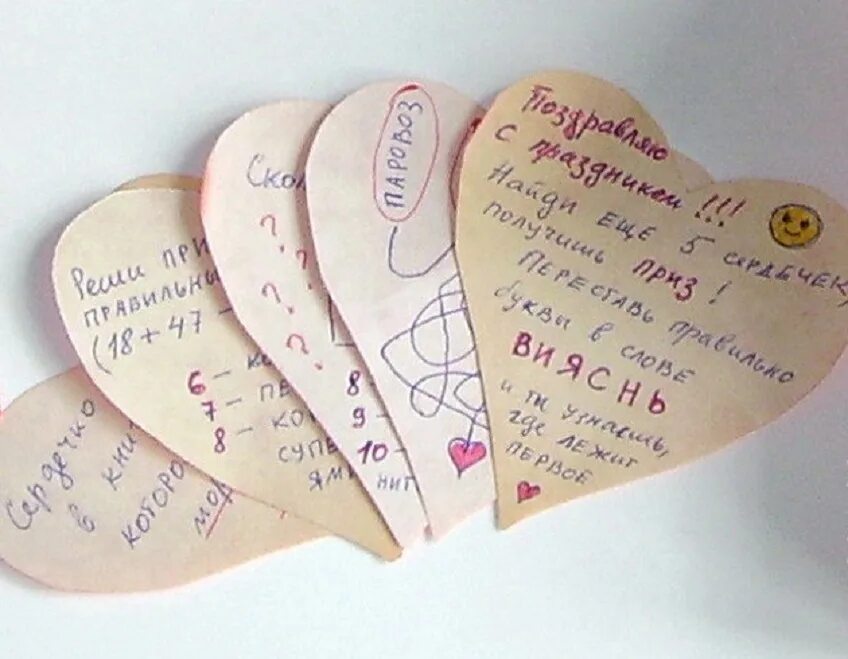 Поздравляю
с праздником!!!
Найди еще 5 сердечек,
получишь приз!
Переставь правильно
буквы в слове
ВИЯСНЬ
и ты узнаешь,
где лежит
первое
ПАРОВОЗ
8-
9-
10-
НИТ
Скол
?
?
?
?
Реши при
правильны
(18+47-
6- ко
7- пе
8- ко
супе
ями
Сердечко
в кни
которо
мор